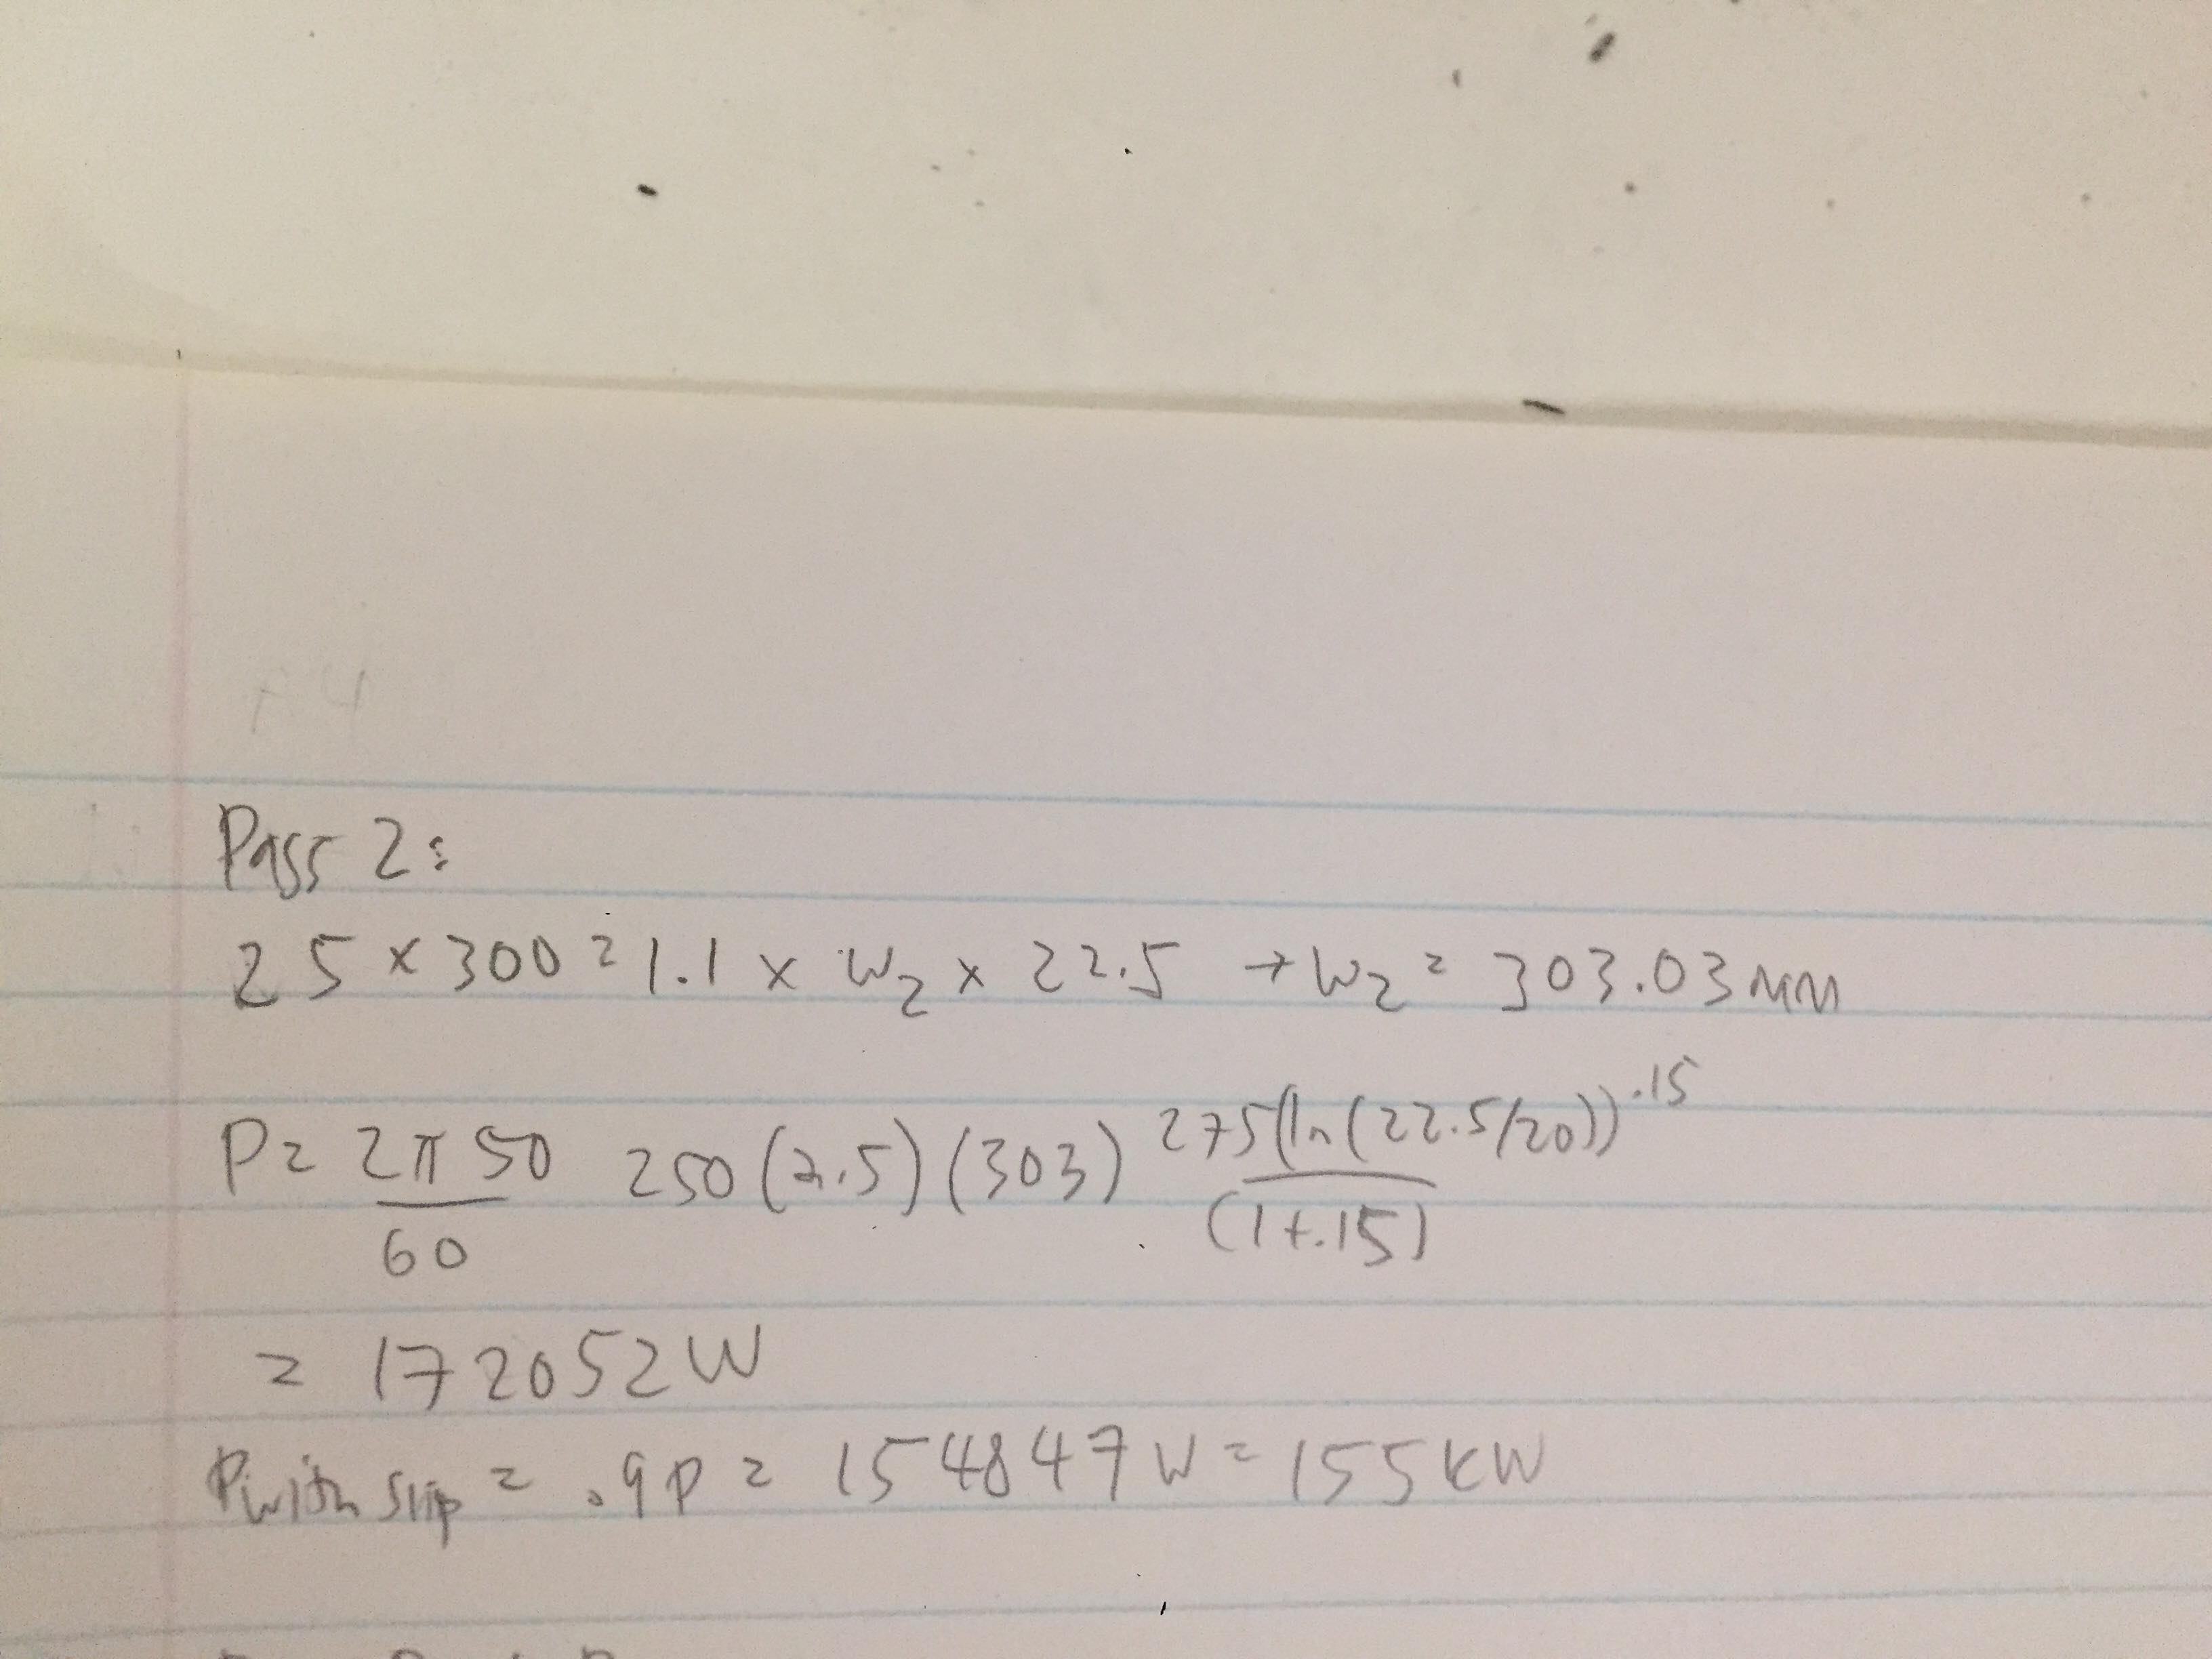 Pass 2:
25 x 300 = 1.1 x w₂ x 22.5 → w₂ = 303.03 mm
P = 2π 50 / 60 250 (2.5) (303) 275(ln(22.5/20))^.15 / (1+.15)
= 172052 W
P with slip = .9P = 154847 W = 155 kW